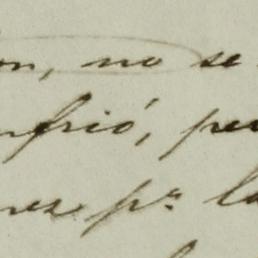 on, no se
nfrió, pe
res pr la